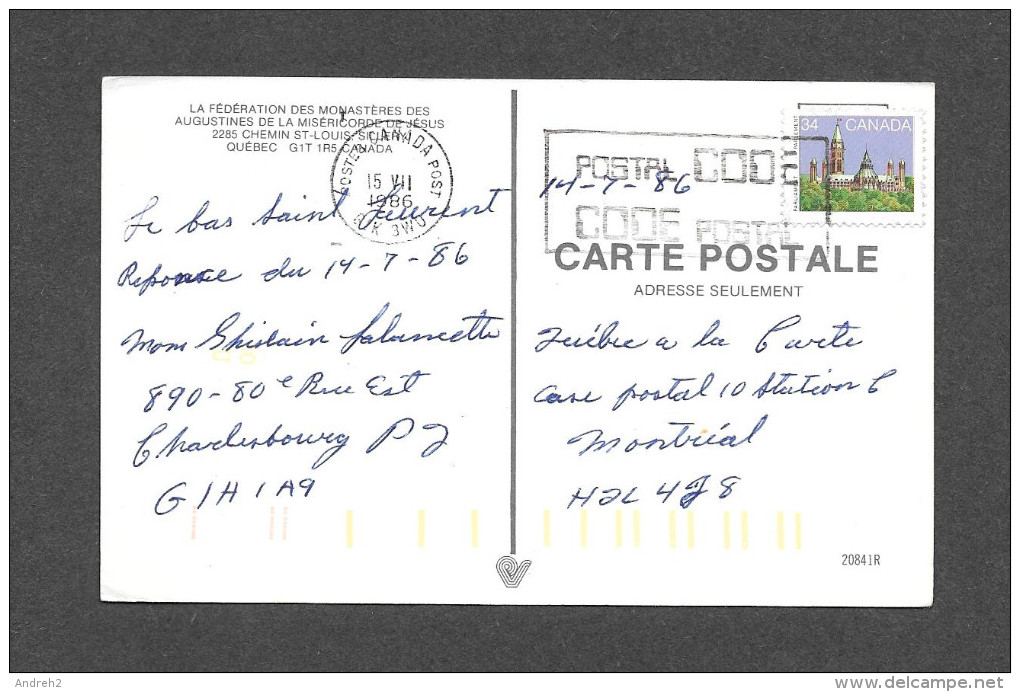 LA FÉDÉRATION DES MONASTÈRES DES
AUGUSTINES DE LA MISÉRICORDE DE JÉSUS
2285 CHEMIN ST-LOUIS, SILLERY
QUÉBEC G1T 1R5 CANADA
CANADA POST
15 VII
1986
3W0
Le bas Saint Laurent
Reponse du 14-7-86
Mom Ghislain Lalancette
890-80e Rue Est
Charlesbourg P Q
G1H 1A9
POSTAL CODE
CODE POSTAL
34 CANADA
PARLEMENT
14-7-86
CARTE POSTALE
ADRESSE SEULEMENT
a la Carte
Case postal 10 Station C
Montréal
H2L 4J8
20841R
Andreh2
www.delcampe.net